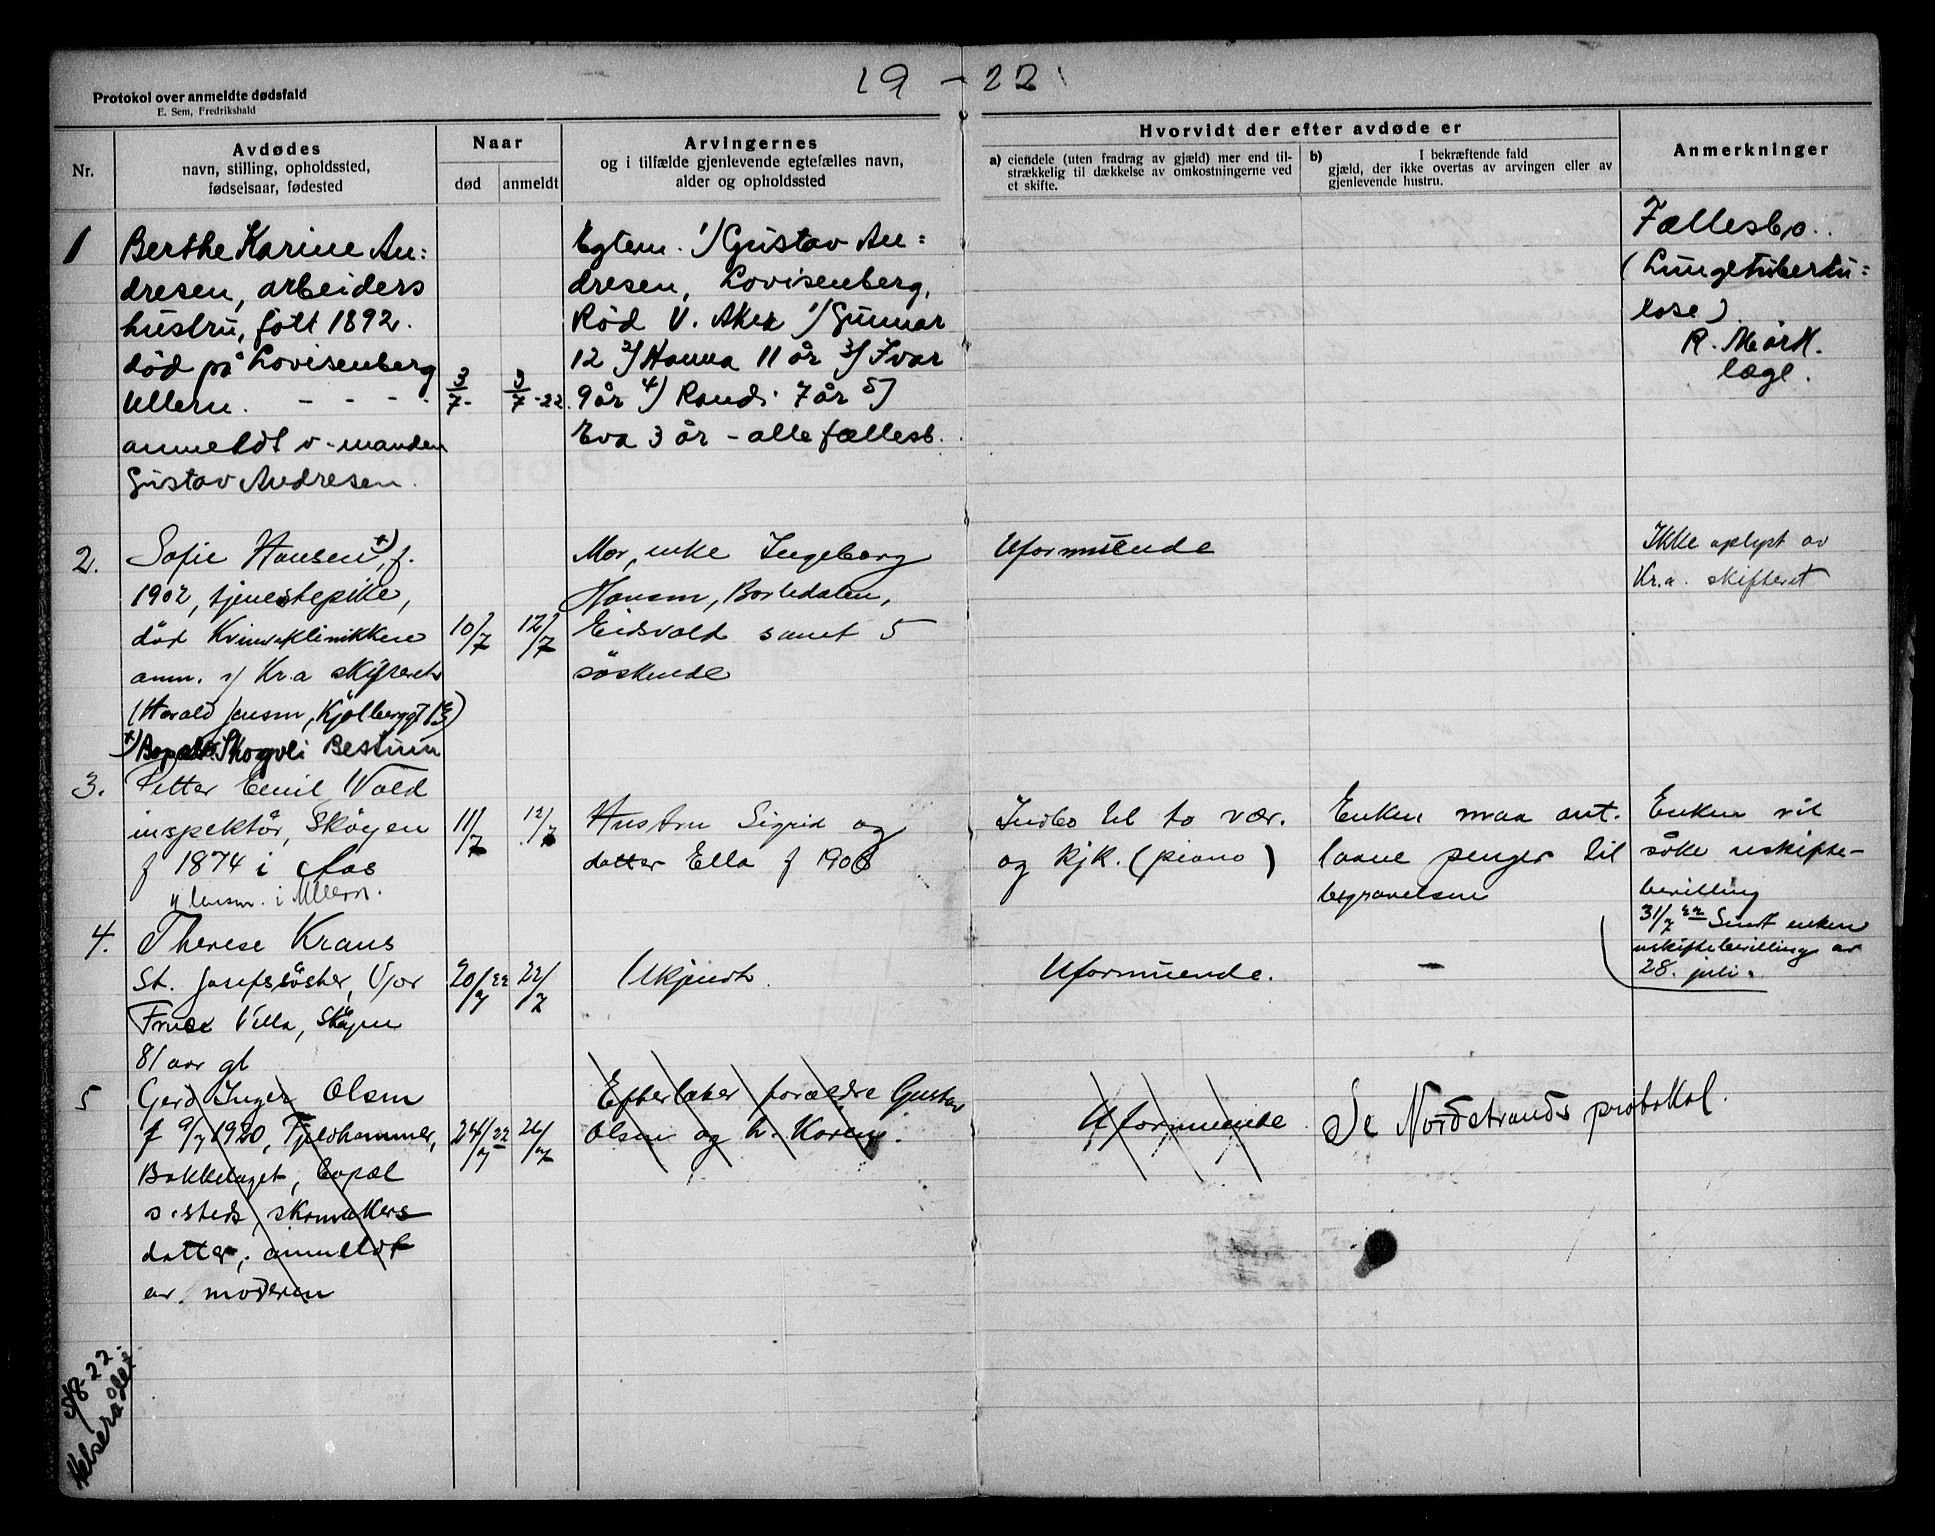 19 - 22
Protokol over anmeldte dødsfald
E. Sem, Fredrikshald
Nr.
Avdødes
navn, stilling, opholdssted,
fødselsaar, fødested
Naar
død
anmeldt
Arvingernes
og i tilfælde gjenlevende egtefælles navn,
alder og opholdssted
Hvorvidt der efter avdøde er
a) eiendele (uten fradrag av gjæld) mer end til-
strækkelig til dækkelse av omkostningerne ved
et skifte.
b) I bekræftende fald
gjæld, der ikke overtas av arvingen eller av
gjenlevende hustru.
Anmerkninger
1
Berthe Karine An:
dresen, arbeiders
hustru, født 1892.
død på Lovisenberg
Ullern. - - - -
anmeldt v. manden
Gustav Andresen.
3/7-
3/7-22.
Egtem. 1) Gustav An:
dresen, Lovisenberg,
Rød V. Aker 1) Gunnar
12 2) Hanna 11 år 3) Ivar
9 år 4) Randi 7 år 5)
Eva 3 år - alle fællesb.
Fællesbo.
(Lungetuberku=
lose).
R. Mørk.
læge.
2.
Sofie Hansen +), f.
1902, tjenestepike,
død Kvindeklinikken
anm. v/ Kr.a skifteret
(Harald Jensen, Kjølberggt 13)
+) Bopæl: Skogveli Bestum
10/7
12/7
Mor, enke Ingeborg
Hansen, Borledalen,
Eidsvold samt 5
søskende
Uformuende
Ikke oplyst av
Kr.a. skifteret
3.
Petter Emil Wold
inspektør, Skøyen
f 1874 i Aas
v/ lensm. i Ullern.
11/7
12/7
Hustru Sigrid og
datter Ella f 1906
Indbo til to vær.
og kjk. (piano)
Enken maa ant.
laane penger til
begravelsen
Enken vil
søke uskifte-
bevilling
31/7 22 Sendt enken
uskiftebevilling av
28. juli.
4.
Therese Kraus
St. Josefssøster, Vor
Frues Villa, Skøyen
81 aar gl
20/7 22
22/7
Ukjendt
Uformuende.
-
5
Gerd Inger Olsen
f 9/7 1920, Fjeldhammer,
Bækkelaget, bopæl
s. steds, skomakers
datter, anmeldt
av moderen
24/7 22
26/7
Efterlater forældre Gustav
Olsen og h. Karen.
Uformuende.
Se Nordstrands protokol.
/8-22.
Helserådet